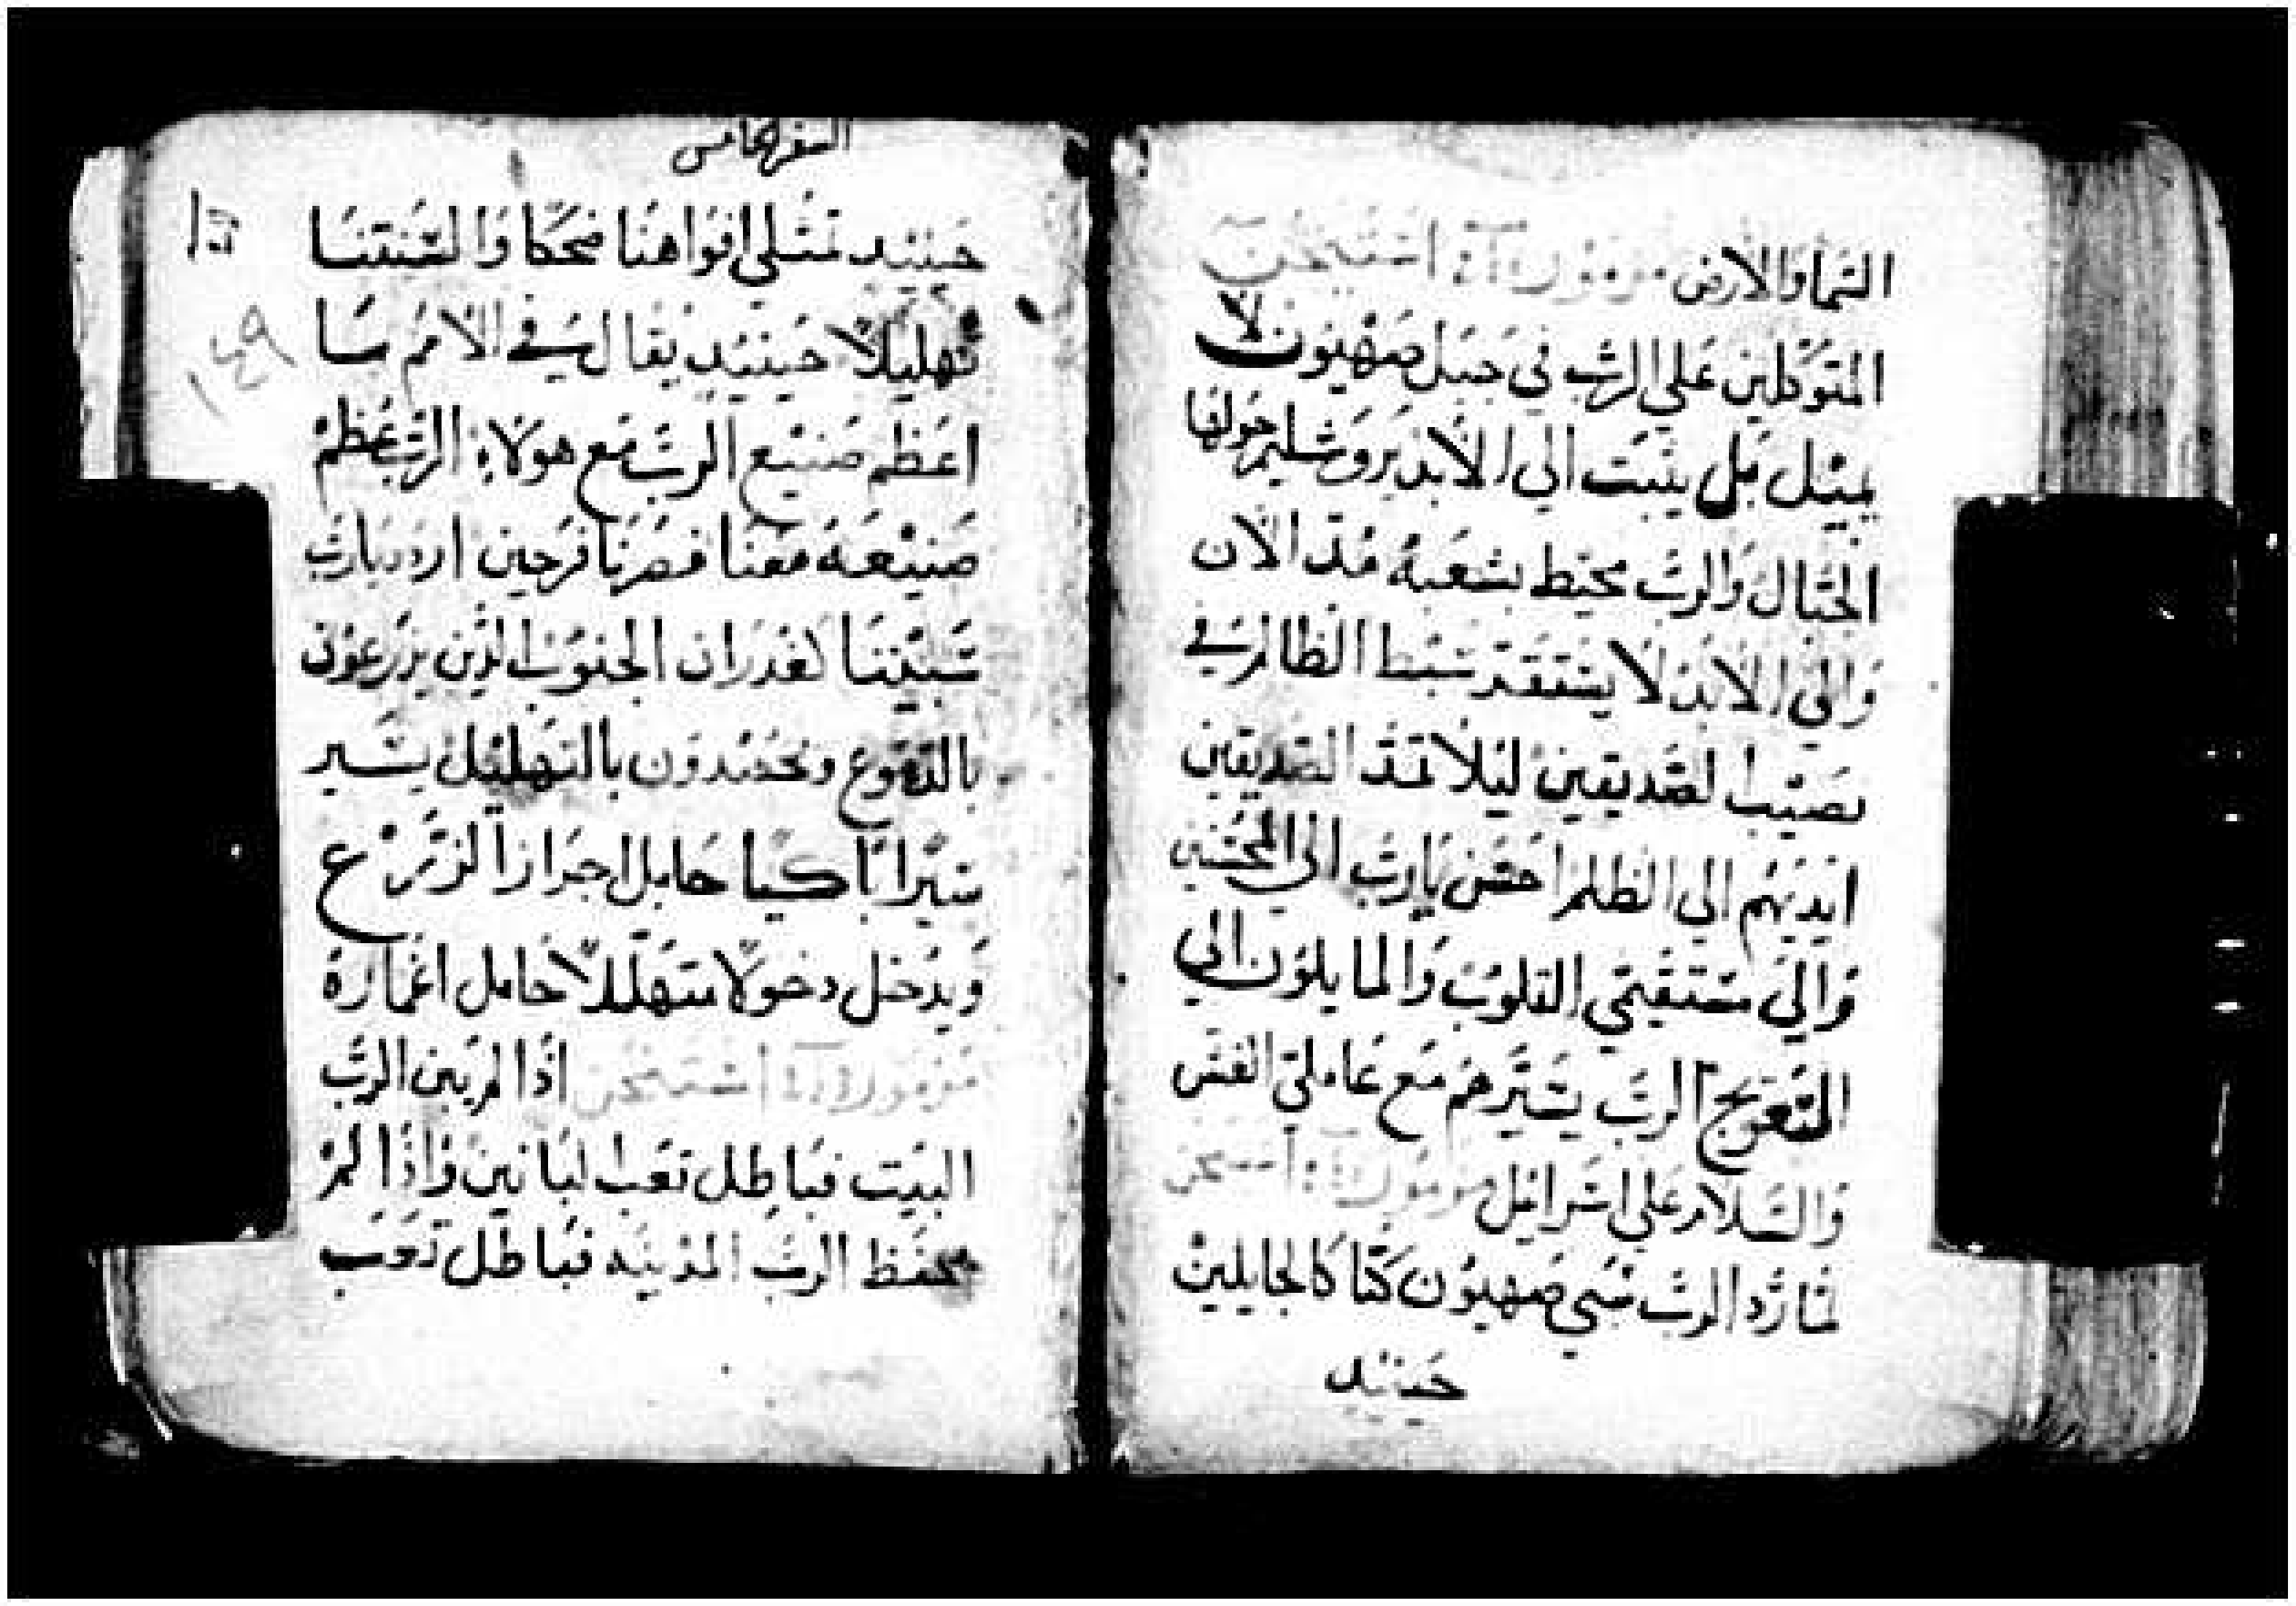 السَما وَالارض مزمور استيخن
المتَوَكلين عَلي الرَب في جبَل صَهيَون لا
يميَل بَل يثبَت الي الابَد يَروَشليم حَولهَا
الجبَال وَالرَب محيَط بشَعبَهُ مُند الان
وَالي الابَد لَا يسَتفقد سَبَط الظَالم في
نصَيَب الصَديقين ليَلا تمَد الصَديقين
ايَديَهُم الي الظلم احسَن يَارَب الي المحسَنين
وَالي مستقيَمي القلوَب وَالمايلوَن الي
التَعوَج الرَب يسَيَرهُم مَع عَاملي الغش
وَالسَلام عَلي اسَرايَل مزموَر استيخن
لمَا رَد الرَب سَبي صَهيوَن كنَا كالجايلين
حَينيد
السفر الخامس
حَينيَد تمَتلي افوَاهنَا ضحكا وَالسَنتنَا
تهليلاً حَينيَد يَقال في الامَم سَا
اعَظم صَنيَع الرَب مَع هولاء الرَب عَظم
صَنيَعَه مَعَنا فصَرنا فَرحين اردد يارَب
سَبيَنَا كغدرَان الجنوَب الذين يزرَعوَن
بالدَموَع وَيحصَدوَن بالتهليَل يسَير
سَيَراً باكيا حَامل جرَاز الزَرَع
وَيدخل دخولا متهَللاً حَامل اغمارهَ
مزمور استيخن اذا لم يَبن الرَب
البيَت فبَاطل تعَب البَانين وَاذا لم
يحفَظ الرَب المديَنه فبَاطل تعَب